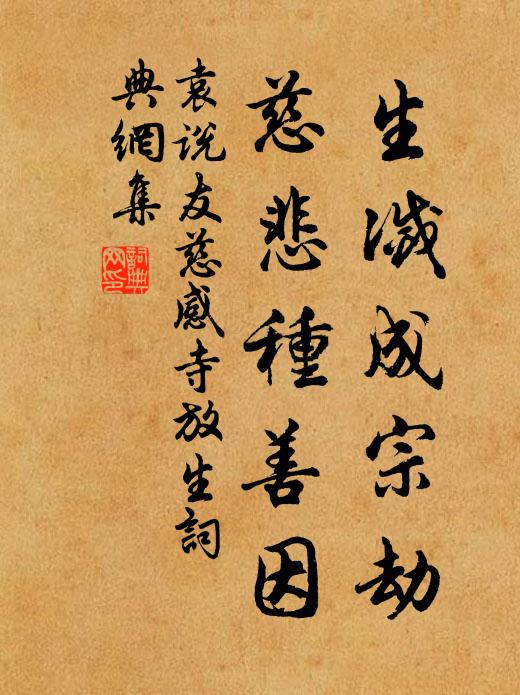 生滅成宗劫
慈悲種善因
袁説友慈感寺放生詞
典網集
詞典
网印